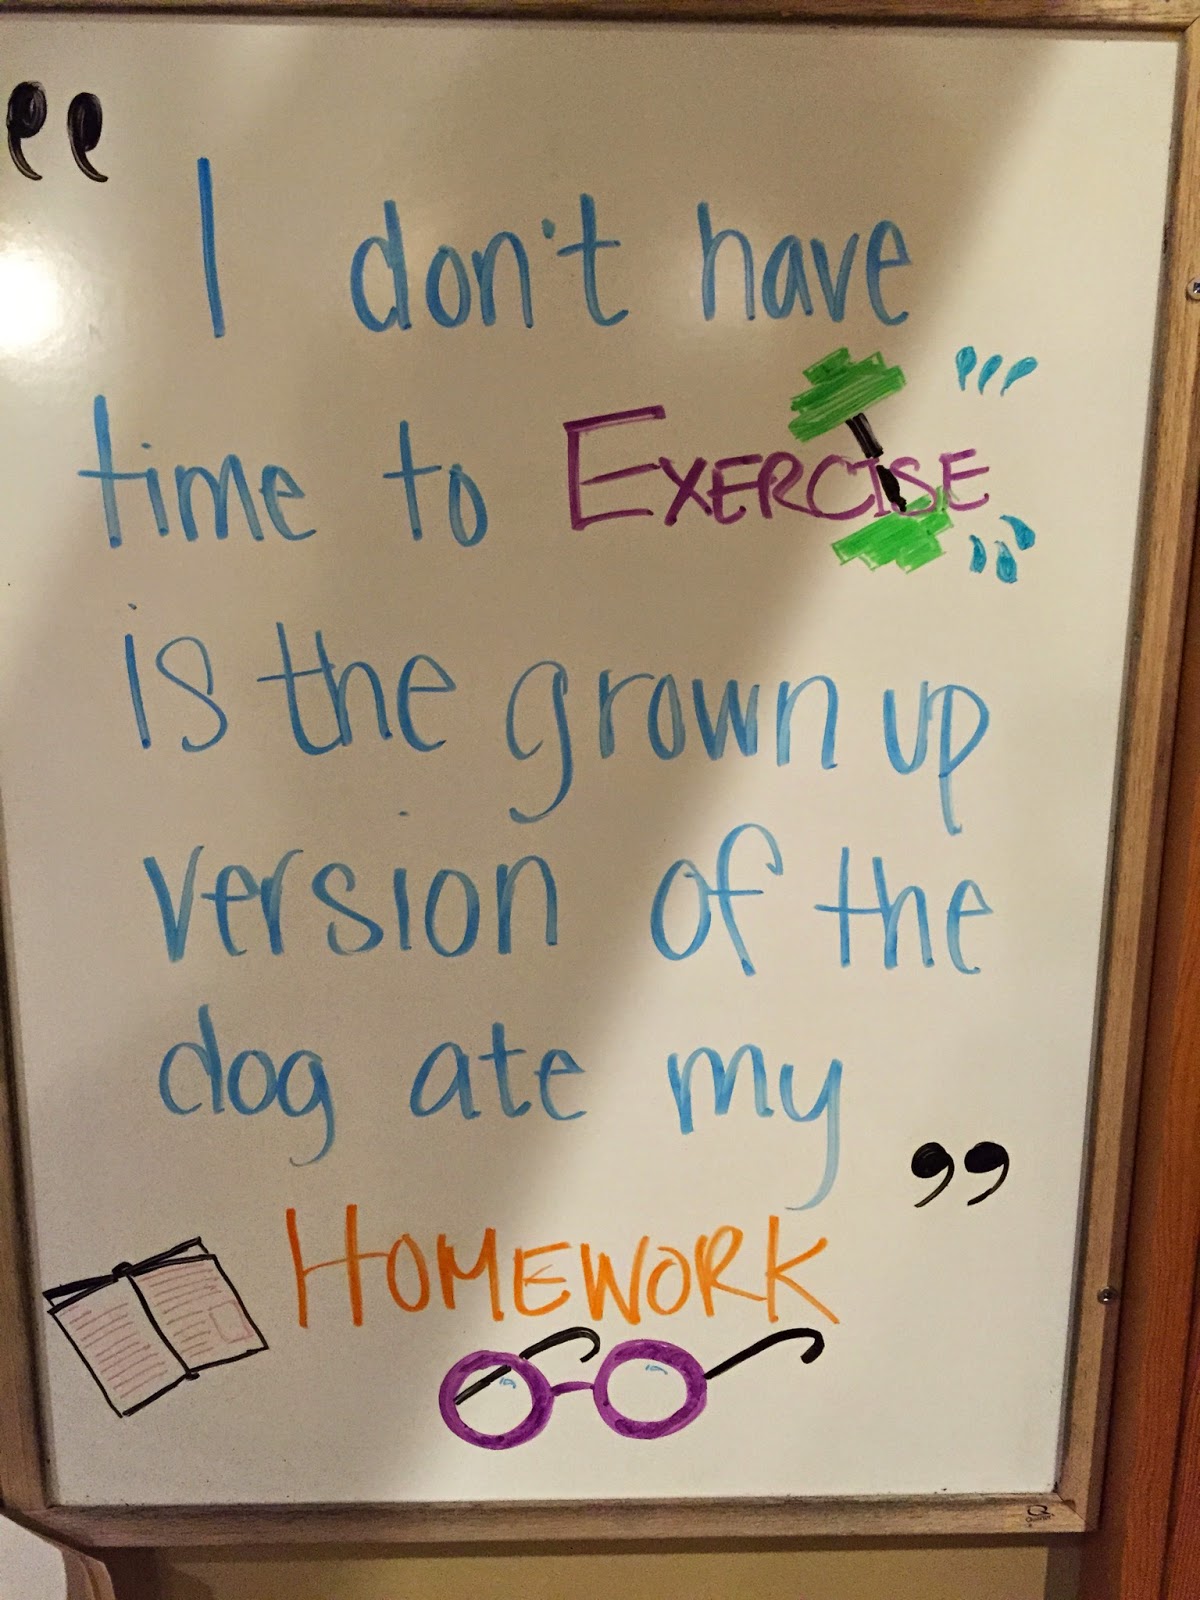 “I don't have
time to EXERCISE
is the grown up
version of the
dog ate my ”
HOMEWORK